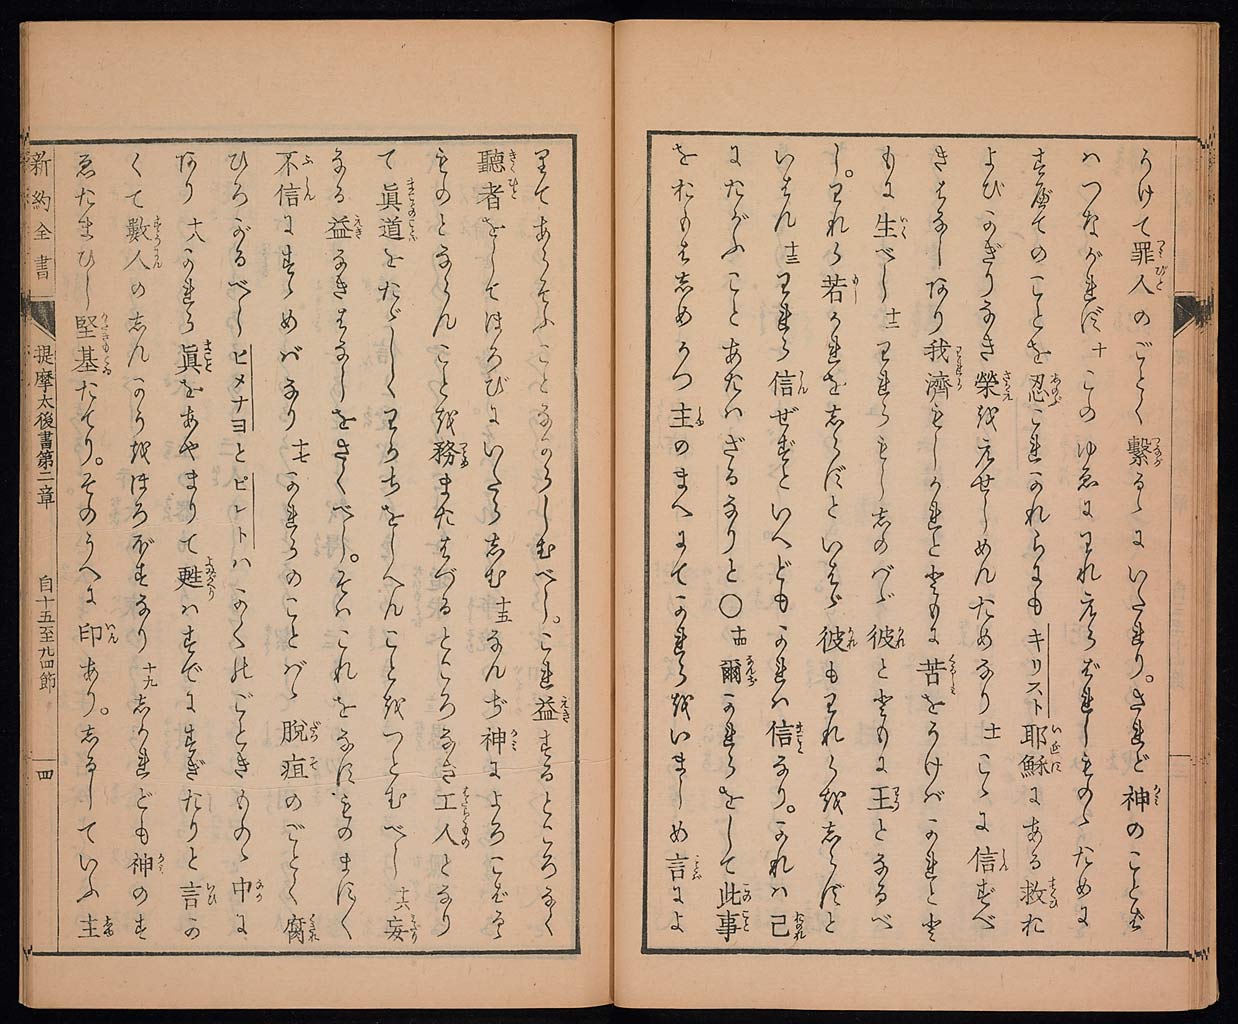 うけて罪人のごとく繋るゝにいたれり。されど神のことば
ハつながれず 十 このゆゑにわれえらばれしものゝために
すべてのことを忍こはかれらにもキリスト耶穌にある救お
よびかぎりなき榮をえせしめんためなり 十一 こゝに信ずべ
きはなしあり我儕もしかれとともに苦をうけバかれとと
もに生べし 十二 われらもししのバゞ彼とともに王となるべ
し。われら若かれをしらずといはゞ彼もわれらをしらずと
いはん 十三 われら信ぜずといへどもかれハ信なり。かれハ己
にたがふことあたハざるなりと〇 十四 爾かれらをして此事
をおもはしめかつ主のまへにてかれらをいましめ言によ
りてあらそふことなからしむべし。これ益するところなく
聽者をしてほろびにいたらしむ 十五 なんぢ神によろこばるゝ
ものとならんことを務またはづるところなき工人となり
て眞道をたゞしくわかちをしへんことをつとむべし 十六 妄
なる益なきはなしをさくべし。そはこれをなすものますく
不信にすゝめバなり 十七 かれらのことバゝ脱疽のごとく腐
ひろがるべしヒメナヨとピレトハかくのごときものゝ中に
あり 十八 かれら眞をあやまりて甦ハすでにすぎたりと言か
くて數人のしんかうをほろぼすなり 十九 しかれども神のす
ゑたまひし堅基たてり。そのうへに印あり。しるしていふ主
新約全書
提摩太後書第二章
自十五至九四節
四